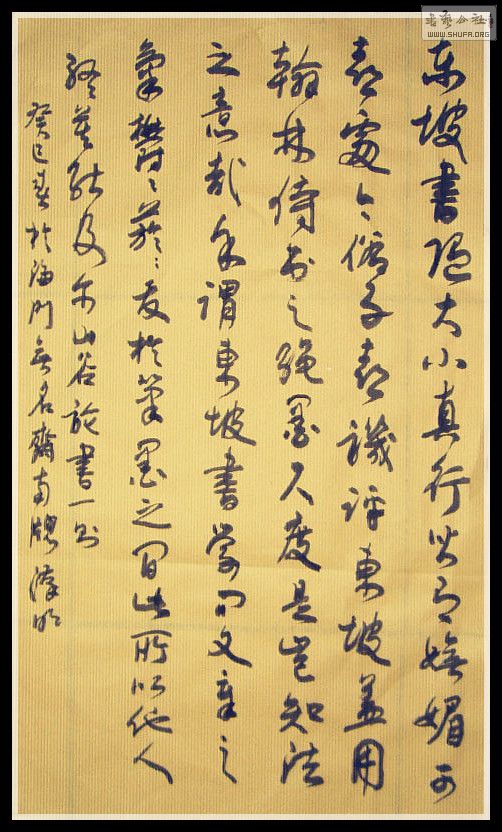 书艺公社
WWW.SHUFA.ORG
东坡書隨大小真行皆有嫵媚可
喜處今俗子喜譏評東坡蓋用
翰林侍书之绳墨尺度是豈知法
之意哉余謂東坡書學问文章之
氣鬱〻芊〻发於筆墨之间此所以他人
終莫能及尔山谷論書一则
癸巳春於海门無名齋南牕